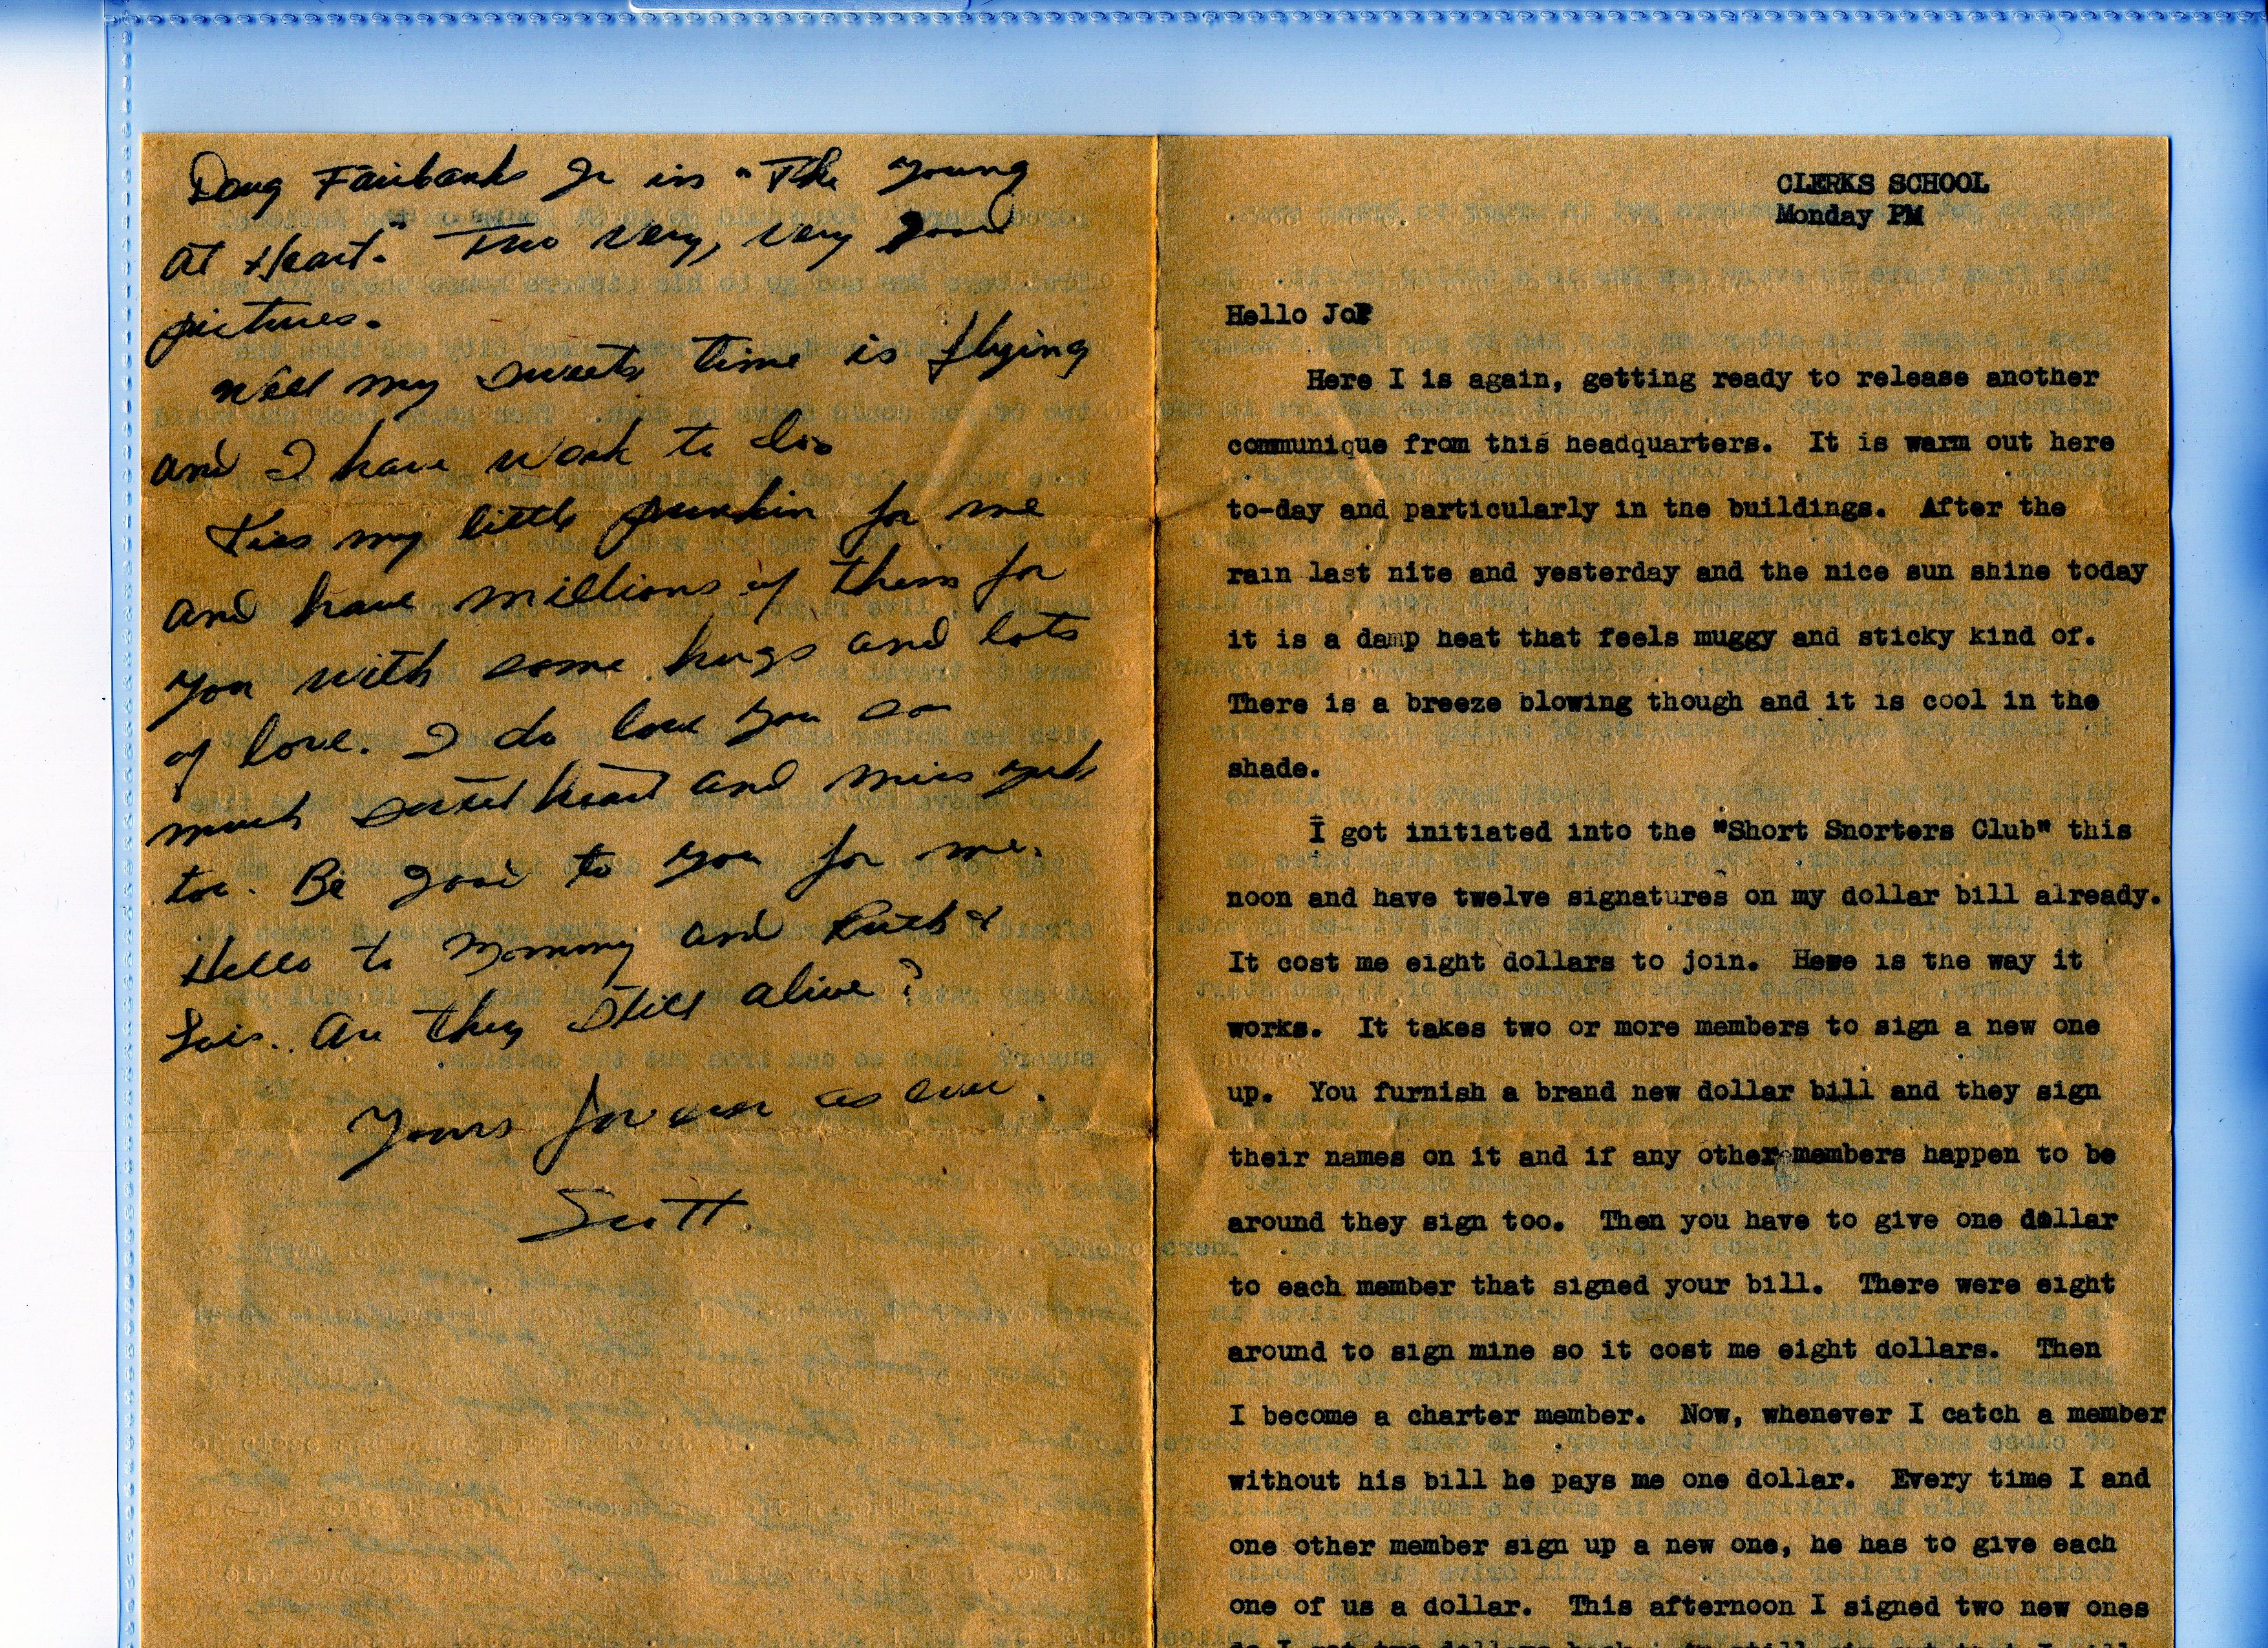 Doug Fairbanks Jr in "The Young
At Heart." Two very, very good
pictures.
Well my sweets time is flying
and I have work to do.
Kiss my little punkin for me
and have millions of them for
you with some hugs and lots
of love. I do love you so
much sweetheart and miss
too. Be good to you for me.
Hello to Mommy and Ruth &
Lois. Are they still alive?
Yours for ever as ever.
Scott.
CLERKS SCHOOL
Monday PM
Hello Jo
Here I is again, getting ready to release another
communique from this headquarters. It is warm out here
to-day and particularly in tne buildings. After the
rain last nite and yesterday and the nice sun shine today
it is a damp heat that feels muggy and sticky kind of.
There is a breeze blowing though and it is cool in the
shade.
I got initiated into the "Short Snorters Club" this
noon and have twelve signatures on my dollar bill already.
It cost me eight dollars to join. Here is the way it
works. It takes two or more members to sign a new one
up. You furnish a brand new dollar bill and they sign
their names on it and if any other members happen to be
around they sign too. Then you have to give one dollar
to each member that signed your bill. There were eight
around to sign mine so it cost me eight dollars. Then
I become a charter member. Now, whenever I catch a member
without his bill he pays me one dollar. Every time I and
one other member sign up a new one, he has to give each
one of us a dollar. This afternoon I signed two new ones